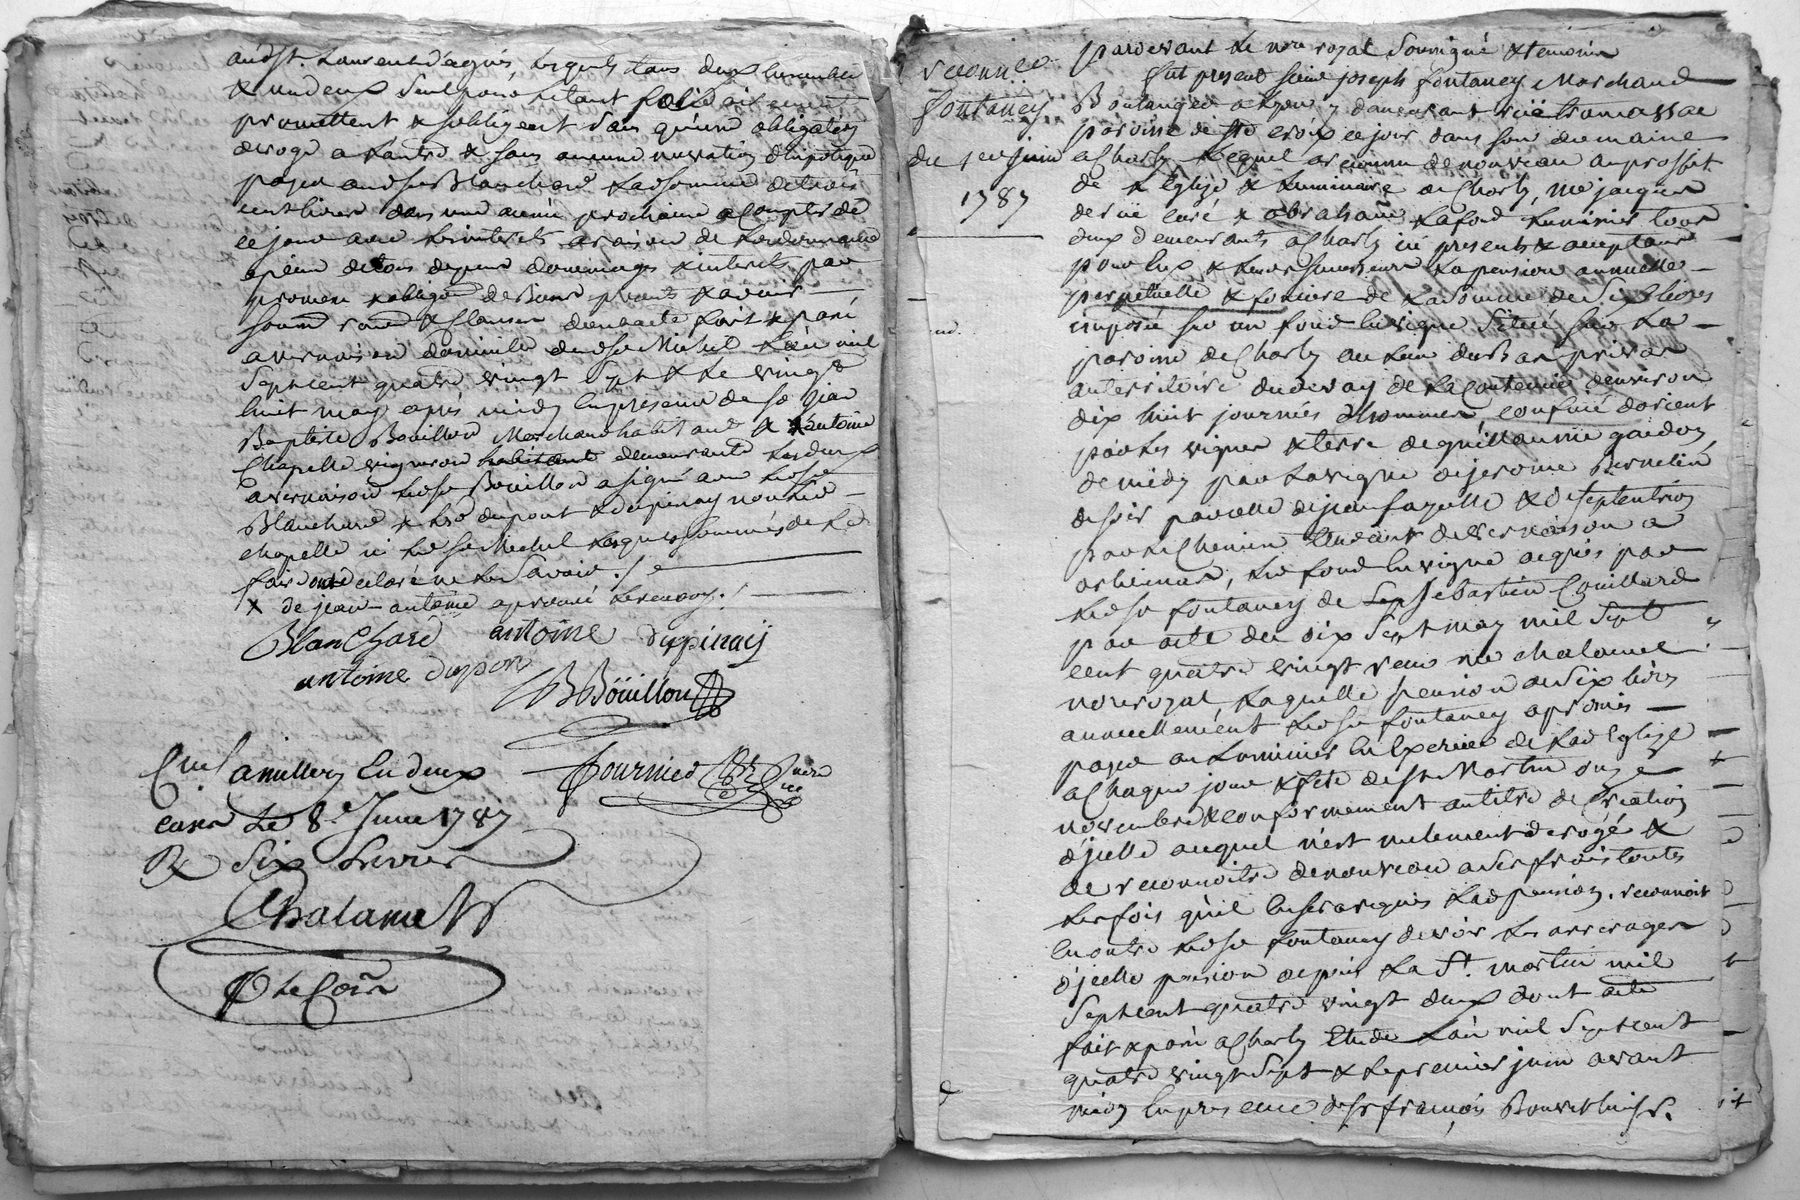 audSt Laurent d'agnis, lesquels tous deux
& un deux seul pour le tout solidairement
promettent & sobligent sans qu'une obligation
deroge a lautre & sans aucune novation d'hipoteque
payer audSr Blanchard laditte somme de trois
cent livres dans une année prochaine a Compter de
ce jour avec les interets a raison de l'ordonnance
apeine de tous depens dommages & interets par
promesse & obligon de biens presents & avenir
soumon renon & Clauses dont acte fait & passé
a vernaison domicile dudSr Michel L'an mil
Sept cent quatre vingt Sept & le vingt
huit may après midy En présence de Sr jean
Baptiste Bouillon Marchand habitant & X antoine
Chapelle vigneron demeurants les deux
a vernaison ledSr Bouillon a signé avec ledSr
Blanchard & lesd dupont & dupinay non led
chapelle ni ledSr Michel requis & sommés de le
faire ont declaré ne le Savoir ./.
X de jean antoine aprouvé le renvoy ./.
Blanchard antoine duppinaÿ
antoine dupon
JBBoüillon
Fournier
Cllé a millery En deux
cases Le 8e Juin 1787
Rx Six Livres
Chalamel
reconnce
fontaney
du 1er juin
1787
pardevant le nore royal Soussigné & temoins
fut present sieur joseph fontaney Marchand
Boulanger a Lyon y demeurant rüe tramassac
paroisse de Ste croix ce jour dans son domaine
a Charly Lequel a reconnu de nouveau au proffit
de L'Eglise & Luminaire de Charly, Me jacques
derüe curé & abraham Lafond Luminier tous
deux demeurants a Charly ici presents & acceptans
pour Eux & leurs successeurs La pension annuelle
perpetuelle & fonciere de La somme de Six livres
imposée sur un fond En vigne Situé sur La
paroisse de Charly au lieu du
au territoire du devay de La Contenue d'environ
dix huit journées d'hommes confiné d'orient
par les vignes & terre de guillaume gaidon
de midy par La vigne de jerome Bernelin
de soir par celle de jean fayolle & de Septentrion
par le Chemin tendant de vernaison a
Led fond En vigne acquis par
ledSr fontaney de Sr Sebastien Couillard
par acte du dix Sept may mil Sept
cent quatre vingt reçu Me chalamel
nore royal, Laquelle pension de Six livres
annuellement ledSr fontaney a promis
payer au Luminier En Exercice de Lad Eglise
a Chaque jour & fête de St Martin onze
novembre & conformement au titre de Création
d'jcelle auquel n'est nulement derogé &
de reconnoitre de nouveau a Ses frois toutes
les fois qu'il En Sera requis Lad pension. reconnoit
En outre ledSr fontaney devoir Les arrerages
d'jcelle pension depuis La St. martin mil
Sept cent quatre vingt deux dont acte
fait & passé a Charly L'an mil Sept cent
quatre vingt Sept & Le premier juin avant
midy En presence de Sr françois Bouvet huissr.